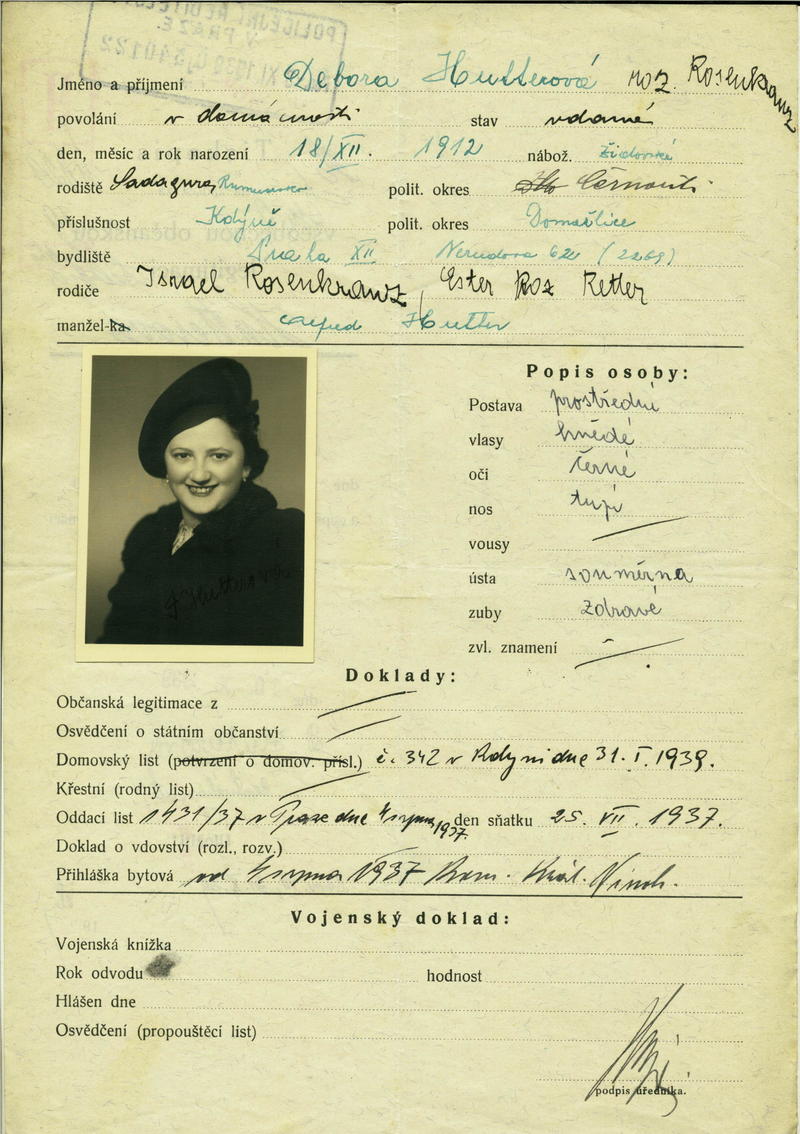 POLICEJNÍ ŘEDITELSTVÍ
V PRAZE
Jméno a příjmení Debora Hutterová roz. Rosenkranz
povolání v domácnosti stav vdaná
den, měsíc a rok narození 18/XII. 1912 nábož. židovské
rodiště Sadagura, Rumunsko polit. okres Černouti
příslušnost Kdýně polit. okres Domažlice
bydliště Praha XII Nerudova 62 (2269)
rodiče Israel Rosenkranz, Ester roz Retter
manžel-ka Alfred Hutter
Popis osoby:
Postava prostřední
vlasy hnědé
oči černé
nos tupý
vousy
ústa souměrná
zuby zdravé
zvl. znamení
Hutterová
Doklady:
Občanská legitimace z
Osvědčení o státním občanství
Domovský list (potvrzení o domov. přísl.) č. 342 v Kdyni dne 31. I. 1939.
Křestní (rodný list)
Oddací list 1431/37 v Praze dne srpna 1937. den sňatku 25. VII. 1937.
Doklad o vdovství (rozl., rozv.)
Přihláška bytová od srpna 1937 Kom. Král. Vinoh.
Vojenský doklad:
Vojenská knížka
Rok odvodu hodnost
Hlášen dne
Osvědčení (propouštěcí list)
podpis úředníka.